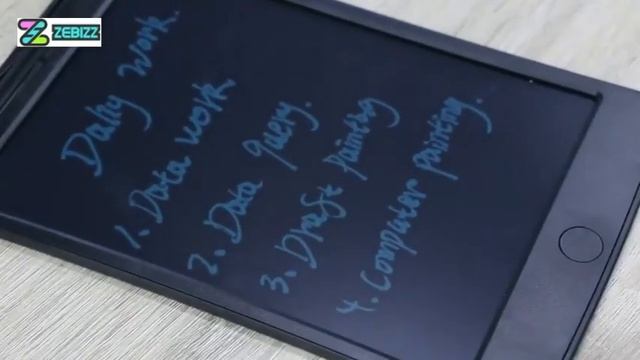 ZEBIZZ
Daily work.
1. Data work
2. Data query.
3. Draft Painting
4. Computer painting.